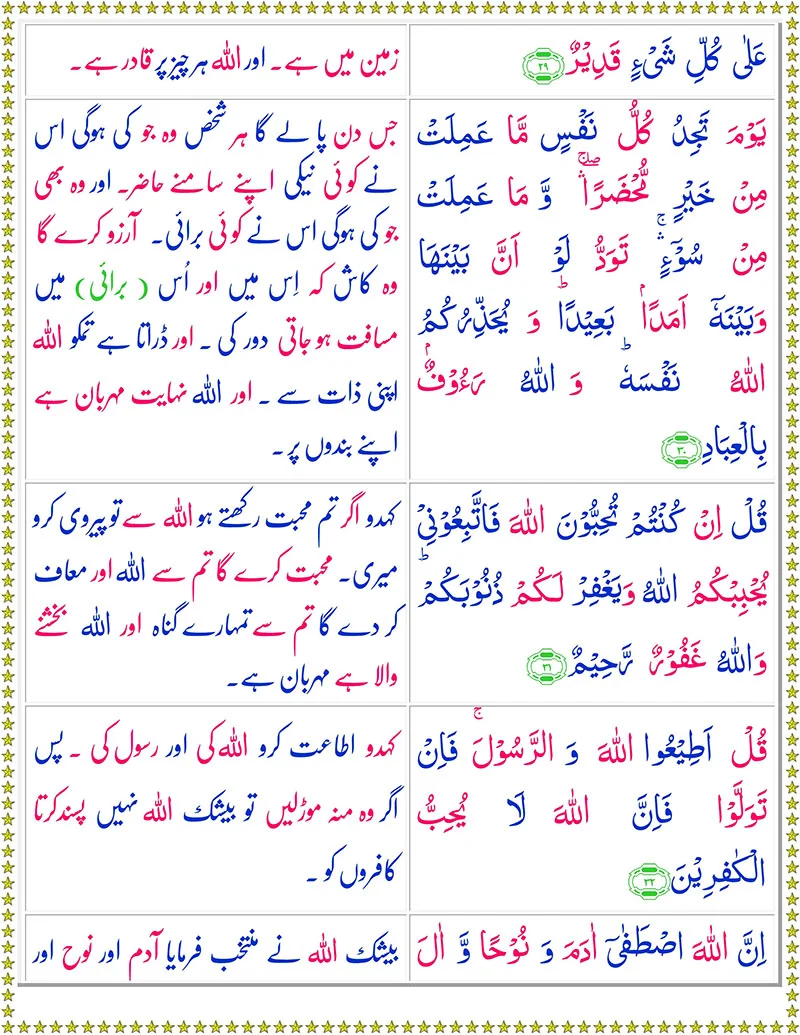 عَلٰى كُلِّ شَىۡءٍ قَدِيۡرٌ ﴿۲۹﴾
زمین میں ہے۔ اور اللہ ہر چیز پر قادر ہے۔
يَوۡمَ تَجِدُ كُلُّ نَفۡسٍ مَّا عَمِلَتۡ
مِنۡ خَيۡرٍ مُّحۡضَرًا ۖۚ وَّ مَا عَمِلَتۡ
مِنۡ سُوۡٓءٍ ۚۛ تَوَدُّ لَوۡ اَنَّ بَيۡنَهَا
وَبَيۡنَهٗۤ اَمَدًۢا بَعِيۡدًا ؕ وَ يُحَذِّرُكُمُ
اللّٰهُ نَفۡسَهٗ ؕ وَ اللّٰهُ رَءُوۡفٌۢ
بِالۡعِبَادِ ﴿۳۰﴾
جس دن پا لے گا ہر شخص وہ جو کی ہوگی اس
نے کوئی نیکی اپنے سامنے حاضر۔ اور وہ بھی
جو کی ہوگی اس نے کوئی برائی۔ آرزو کرے گا
وہ کاش کہ اِس میں اور اُس ( برائی) میں
مسافت ہو جاتی دور کی ۔ اور ڈراتا ہے تمکو اللہ
اپنی ذات سے ۔ اور اللہ نہایت مہربان ہے
اپنے بندوں پر ۔
قُلۡ اِنۡ كُنۡتُمۡ تُحِبُّوۡنَ اللّٰهَ فَاتَّبِعُوۡنِىۡ
يُحۡبِبۡكُمُ اللّٰهُ وَيَغۡفِرۡ لَـكُمۡ ذُنُوۡبَكُمۡ ؕ
وَاللّٰهُ غَفُوۡرٌ رَّحِيۡمٌ ﴿۳۱﴾
کہدو اگر تم محبت رکھتے ہو اللہ سے تو پیروی کرو
میری۔ محبت کرے گا تم سے اللہ اور معاف
کر دے گا تم سے تمہارے گناہ اور اللہ بخشنے
والا ہے مہربان ہے۔
قُلۡ اَطِيۡعُوا اللّٰهَ وَ الرَّسُوۡلَ ۚ فَاِنۡ
تَوَلَّوۡا فَاِنَّ اللّٰهَ لَا يُحِبُّ
الۡكٰفِرِيۡنَ ﴿۳۲﴾
کہدو اطاعت کرو اللہ کی اور رسول کی ۔ پس
اگر وہ منہ موڑلیں تو بیشک اللہ نہیں پسند کرتا
کافروں کو ۔
اِنَّ اللّٰهَ اصۡطَفٰٓى اٰدَمَ وَ نُوۡحًا وَّ اٰلَ
بیشک اللہ نے منتخب فرمایا آدم اور نوح اور